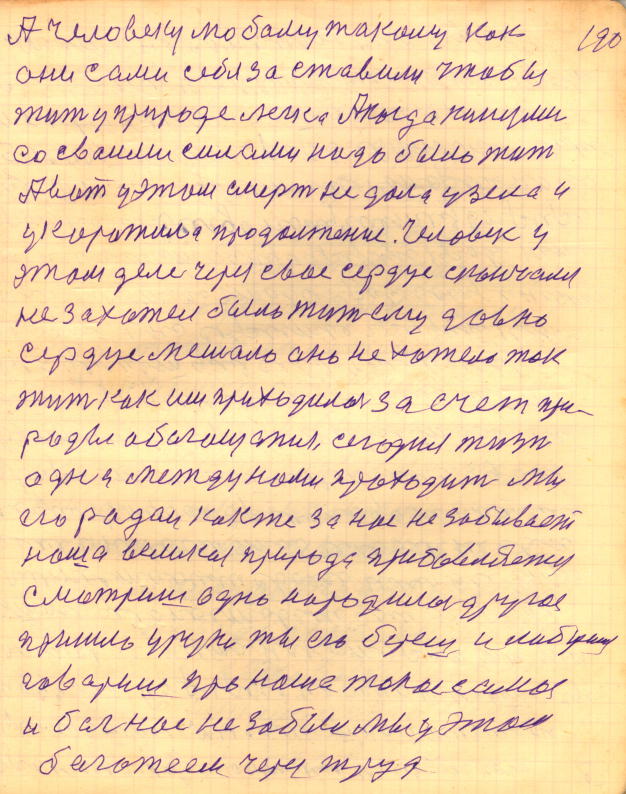 А человеку любому такому как 190
они сами себя заставили чтобы
жит у природе легка А когда кинули
со сваими силами надо было жит
А вот у этом смерт не дала узела и
укоротила продолжение. Человек у
этом деле через свое сердце скончался
не захотел было жит ему давно
сердце мешало оно не хотело так
жит как им приходилос за счет при-
роды обогощатся, сегодня жизн
одна между нами проходит мы
его радаи как же за нас не забывает
наша великая природа прибовляет
смотриш одно народилос другое
пришло у руки ты его береш и
говариш про наша такое самое
и бог нас не забыл мы у этом
богатеем через труд